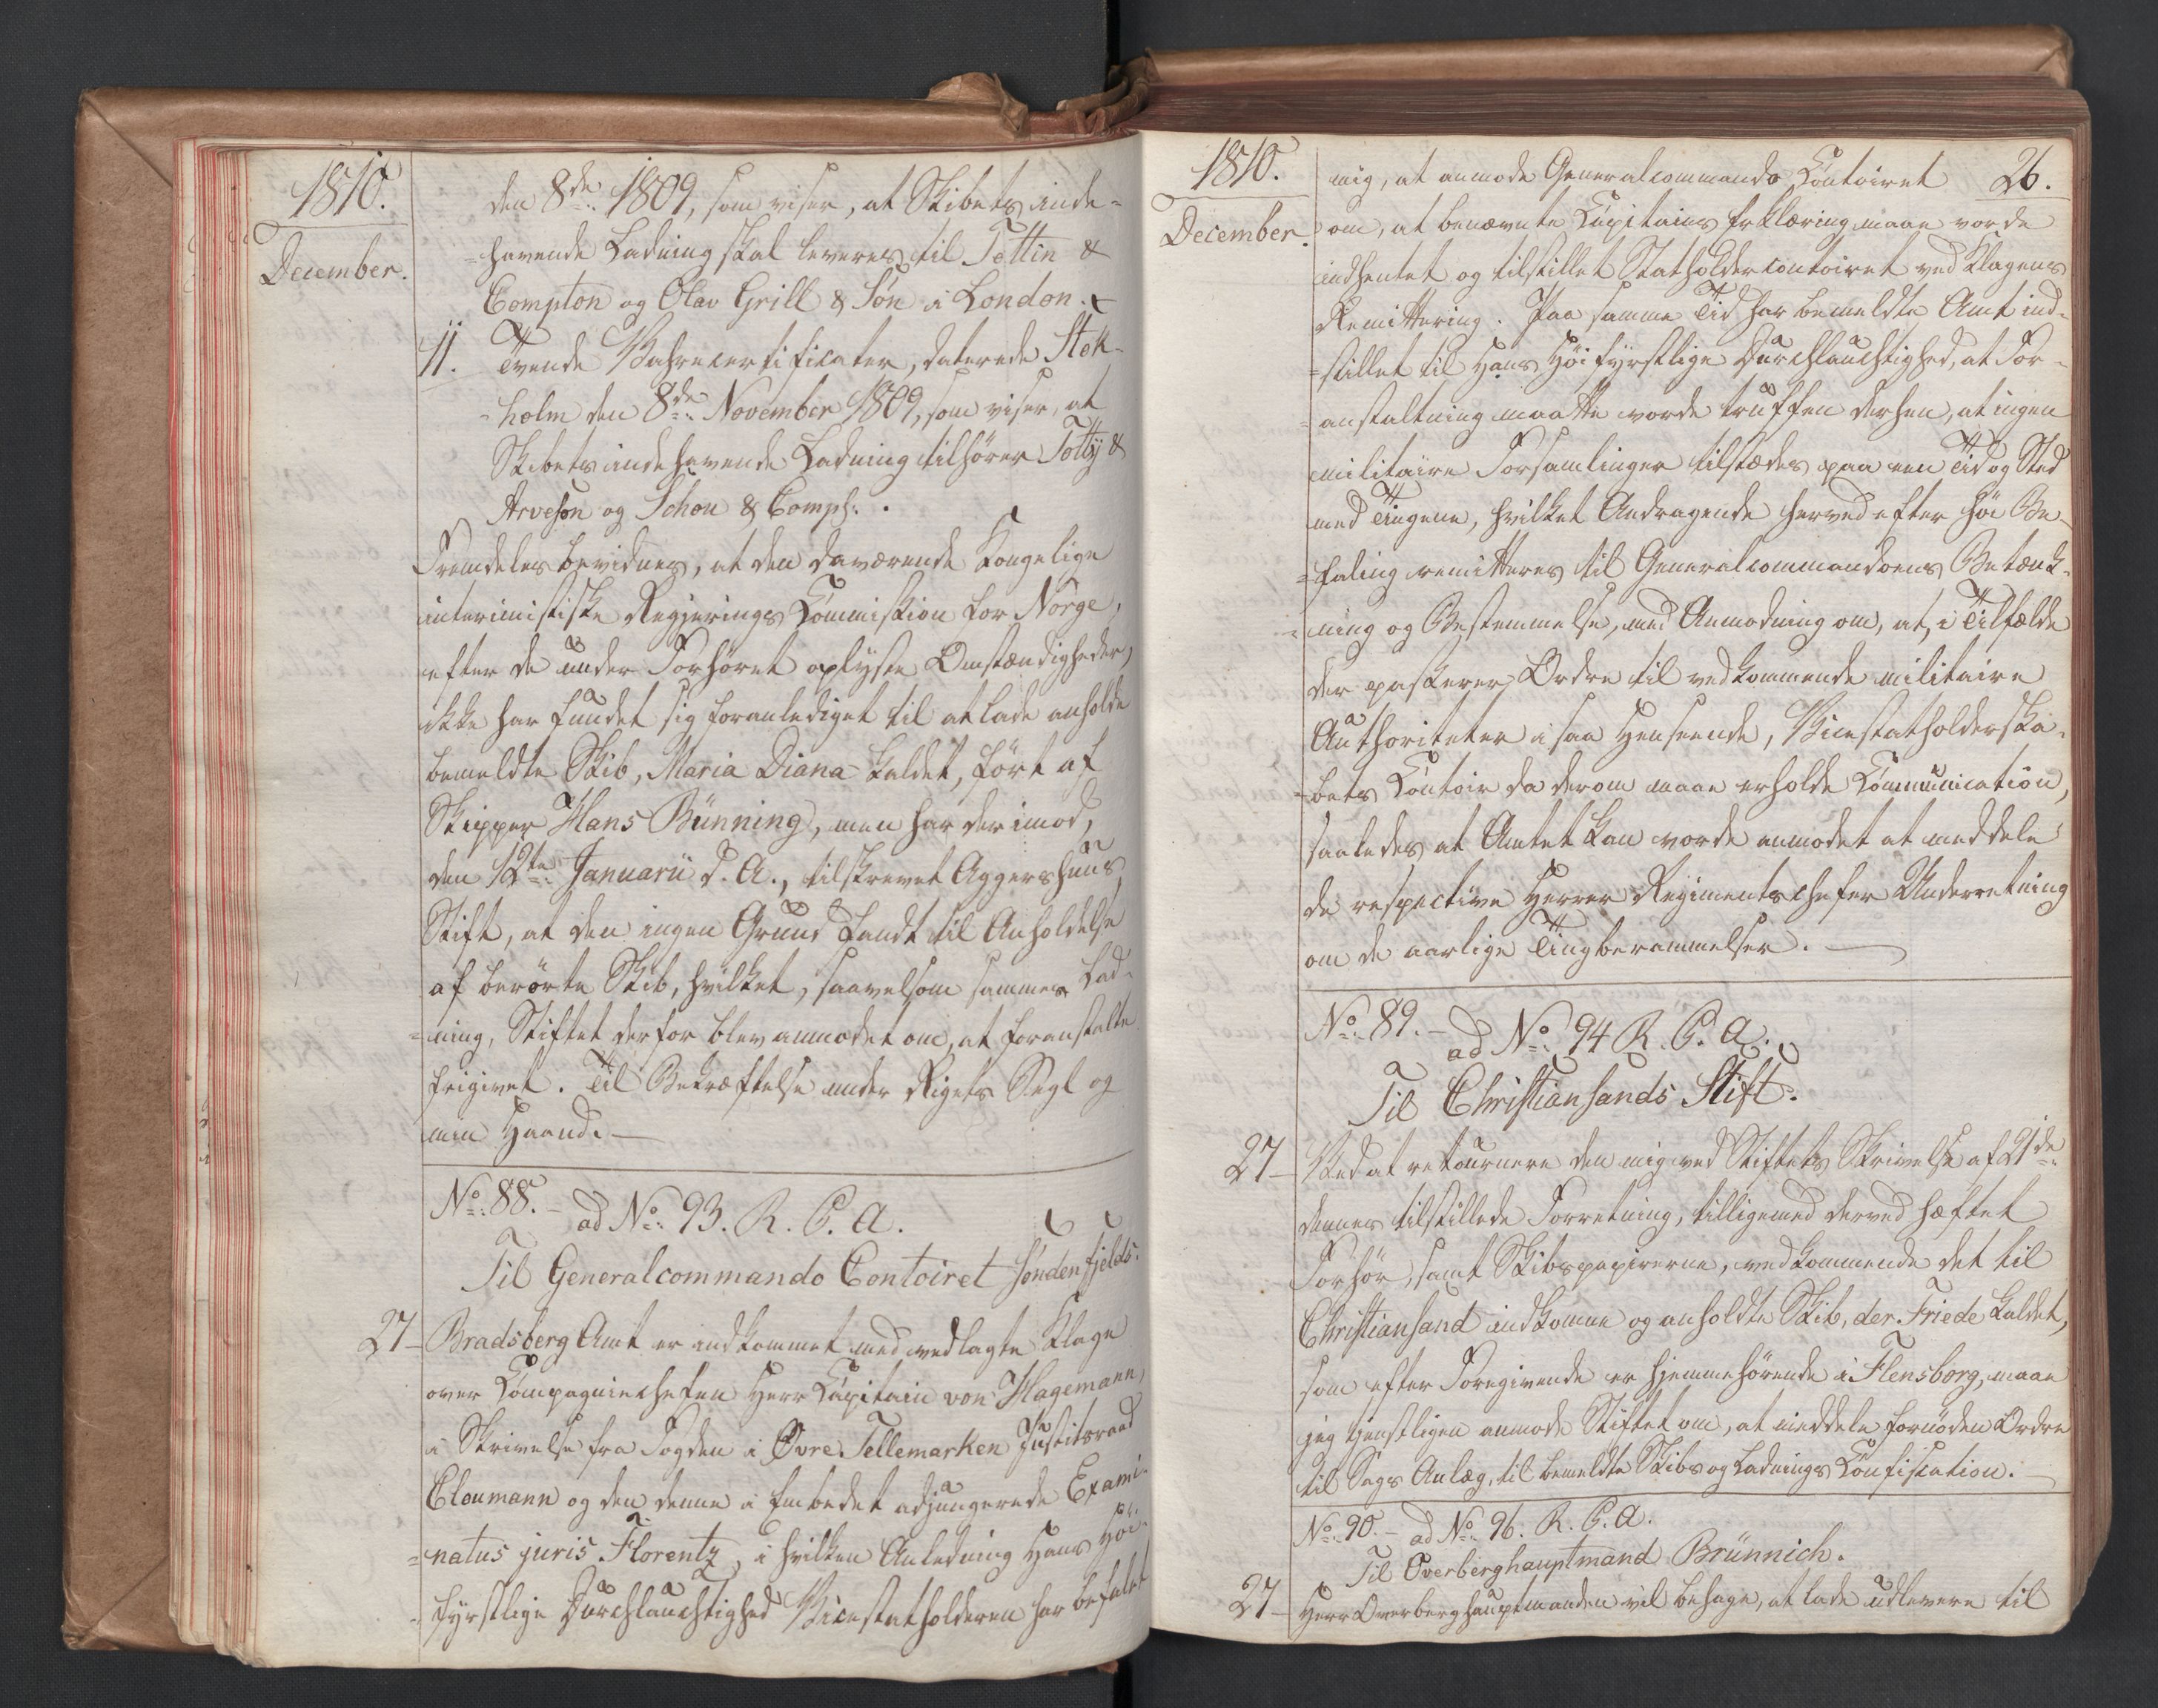 1810.
December.
den 8de 1809, som viser, at Skibets inde=
=havende Ladning skal leveres til Tottin &
Compton og Olav Grill & Søn i London.
11. Tvende Wahrecertificater, daterede Stok=
=holm den 8de November 1809, som viser, at
Skibets indehavende Ladning tilhører Totty &
Arveson og Schon & Comp:.
Fremdeles bevidnes, at den daværende Kongelige
interimistiske Regjerings Commission for Norge,
efter de under Forhøret oplyste Omstændigheder,
ikke har fundet sig foranlediget til at lade anholde
bemeldte Skib, Maria Diana kaldet, ført af
Skipper Hans Bünning, men har derimod,
den 12te Januarii d. A., tilskrevet Aggershuus
Stift, at den ingen Grund fandt til Anholdelse
af berørte Skib, hvilket, saavelsom sammes Lad=
=ning, Stiftet derfor blev anmodet om, at foranstalte
frigivet. Til Bekræftelse under Rigets Segl og
min Haand.
No. 88. ad No. 93. R. P. A.
Til Generalcommando Contoiret søndenfjelds.
27 Bradsberg Amt er indkommet med vedlagte Klage
over Compagniechefen Herr Capitain von Hagemann,
i Skrivelse fra Fogden i Øvre Tellemarken Justitsraad
Cloumann og den denne i Embedet adjungerede Exami=
=natus juris Florentz, i hvilken Anledning Hans Höi=
=fyrstlige Durchlauchtighed Vicestatholderen har befalet
1810.
December.
26.
mig, at anmode Generalcommando Contoiret
om, at benævnte Capitains Erklæring maae vorde
indhentet og tilstillet Statholdercontoiret ved Klagens
Remittering. Paa samme Tid har bemeldte Amt ind=
=stillet til Hans Höifyrstlige Durchlauchtighed, at For=
=anstaltning maatte vorde truffen derhen, at ingen
militaire Forsamlinger tilstædes paa een Tid og Sted
med Tingene, hvilket Andragende herved efter høi Be=
=faling remitteres til Generalcommandoens Betænk=
=ning og Bestemmelse, med Anmodning om, at, i Tilfælde
der passerer Ordre til vedkommende militaire
Authoriteter i saa Henseende, Vicestatholderska=
=bets Contoir da derom maae erholde Communication,
saaledes at Amtet kan vorde anmodet at meddele
de respective Herrer Regimentschefer Underretning
om de aarlige Tingberammelser.
No. 89. ad No. 94 R. P. A.
Til Christiansands Stift.
27 Ved at retournere den mig ved Stiftets Skrivelse af 21de
dennes tilstillede Forretning, tilligemed derved hæftet
Forhør, samt Skibspapirerne, vedkommende det til
Christiansand indkomne og anholdte Skib, der Friede kaldet,
som efter Foregivende er hjemmehørende i Flensborg, maae
jeg tjenstligen anmode Stiftet om, at meddele fornøden Ordre
til Sags Anlæg, til bemeldte Skibs og Ladnings Confiscation.
No. 90. ad No. 96. R. P. A.
Til Overberghauptmand Brünnich.
27 Herr Overberghauptmanden vil behage, at lade udlevere til